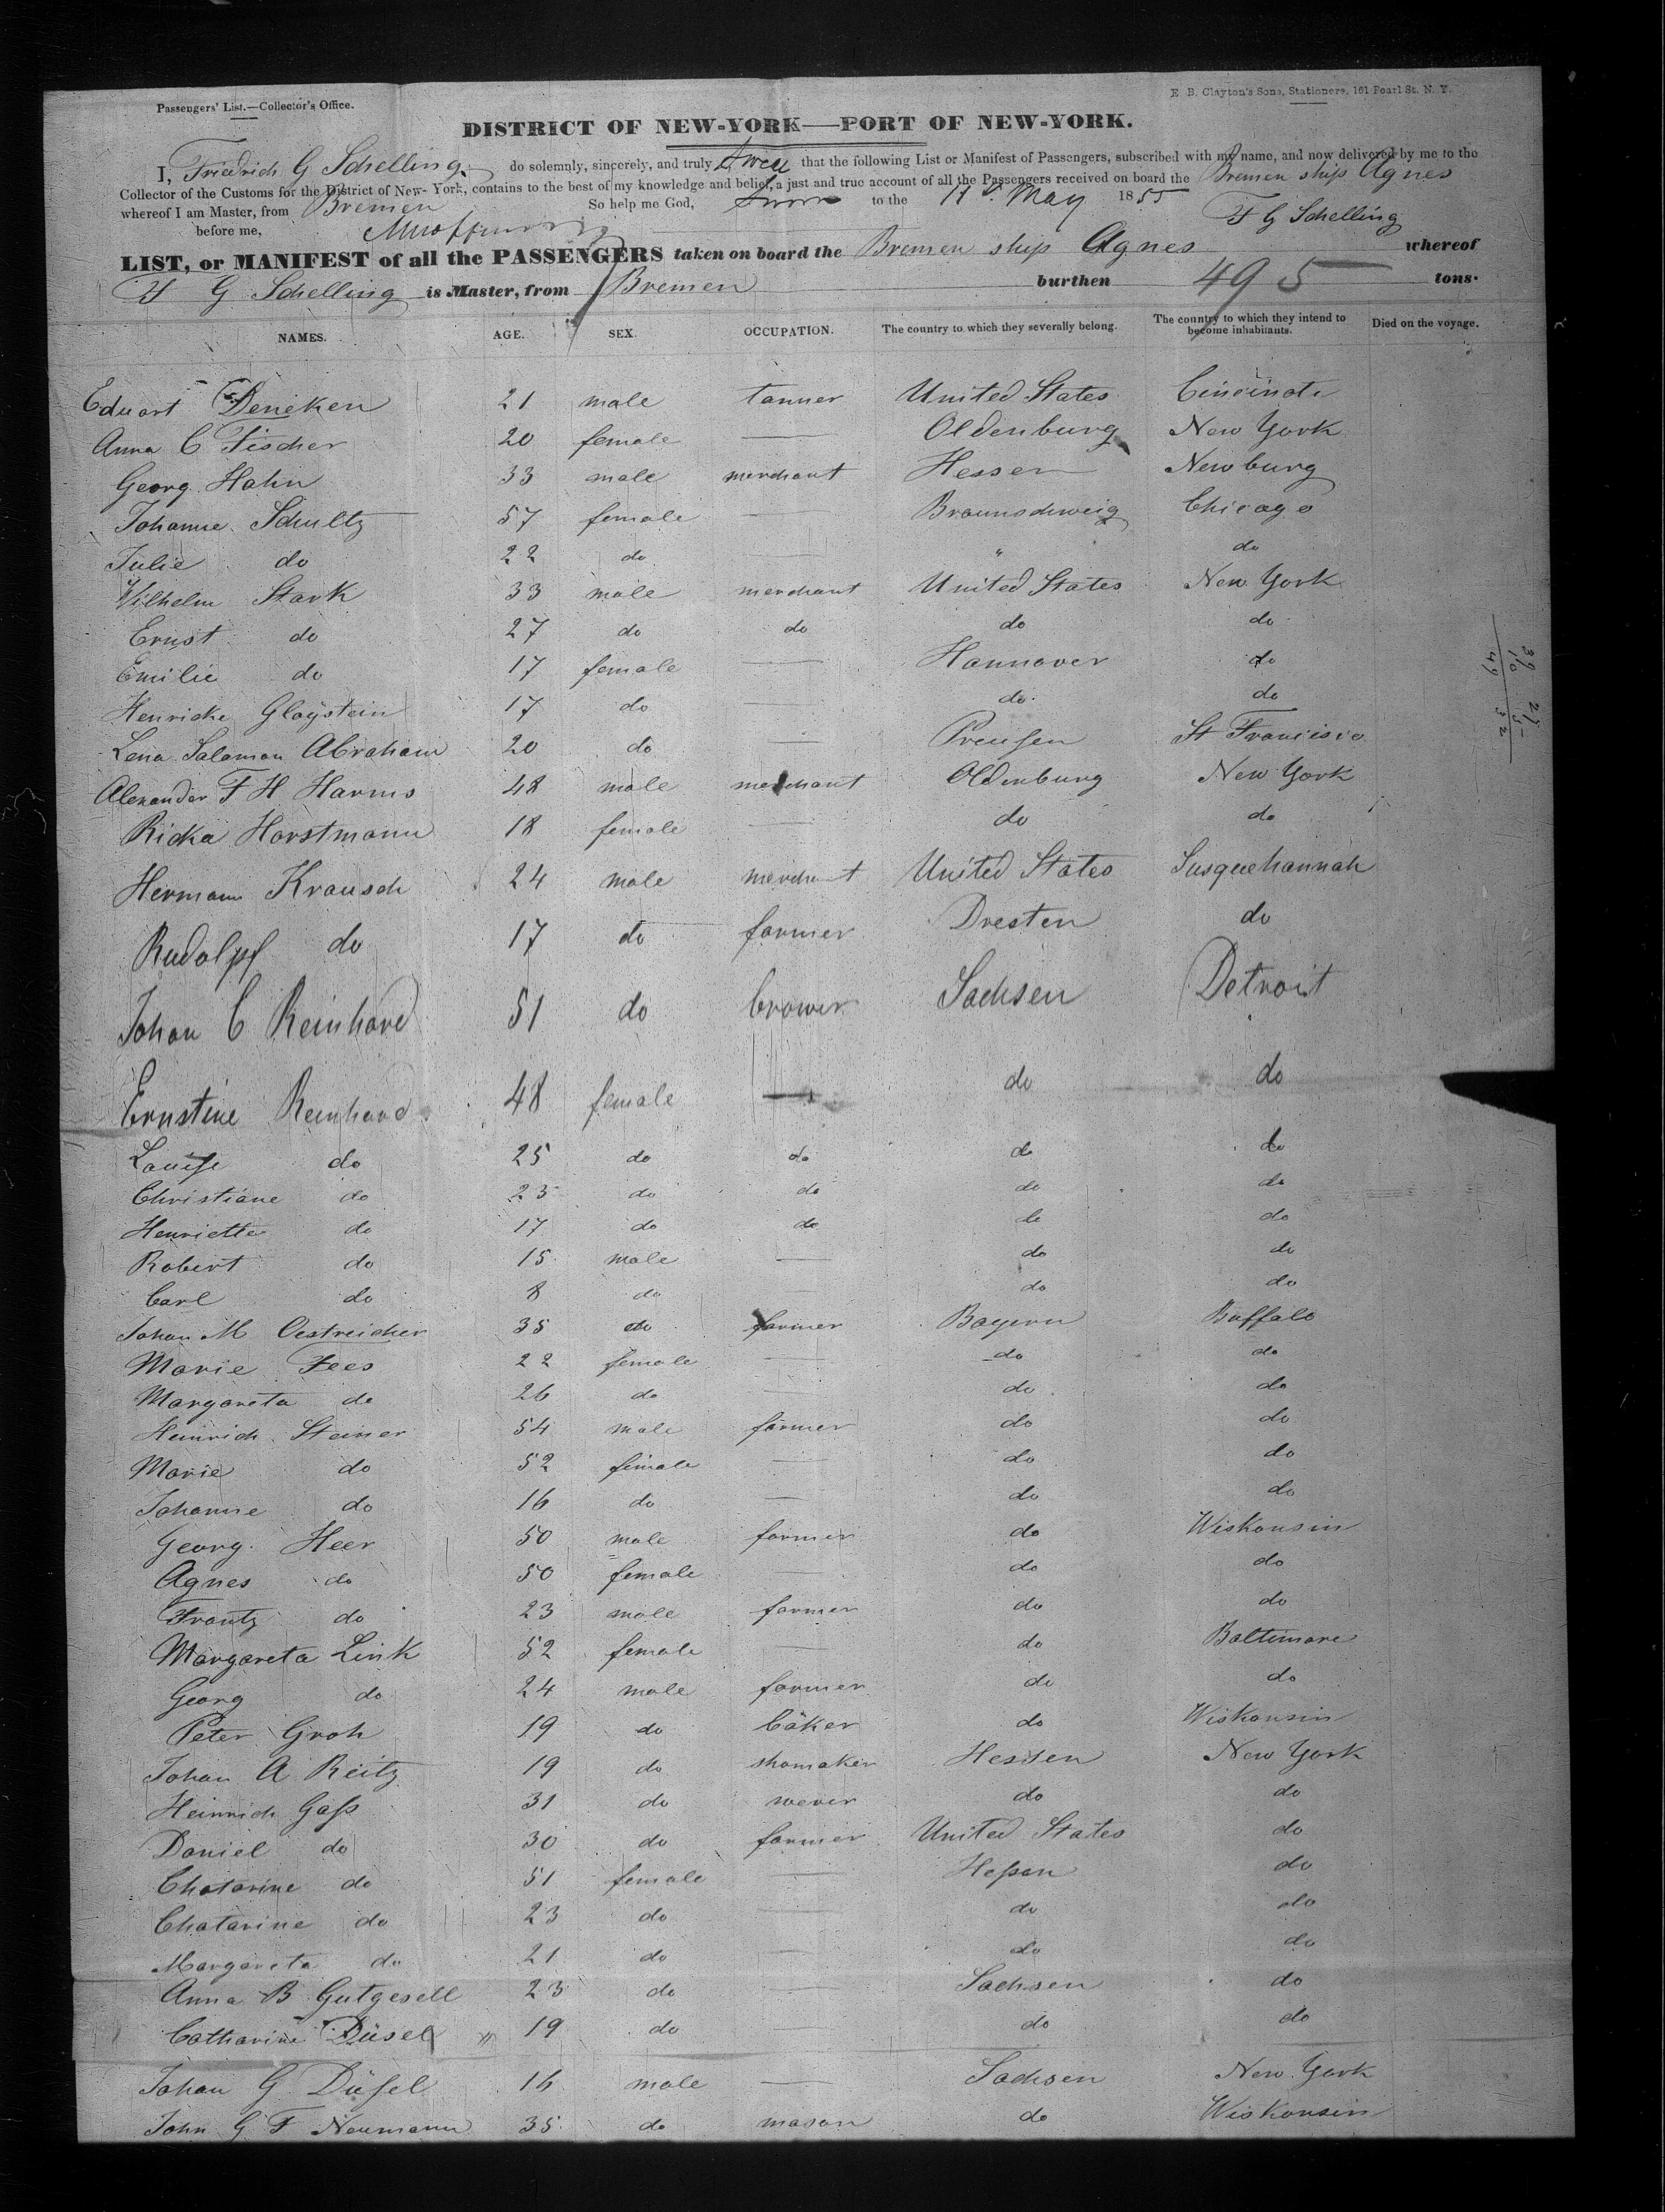 Passengers' List.—Collector's Office.
E. B. Clayton's Sons, Stationers, 161 Pearl St. N. Y.
DISTRICT OF NEW-YORK—PORT OF NEW-YORK.
I, Friedrich G Schelling do solemnly, sincerely, and truly swear that the following List or Manifest of Passengers, subscribed with my name, and now delivered by me to the
Collector of the Customs for the District of New-York, contains to the best of my knowledge and belief, a just and true account of all the Passengers received on board the Bremen ship Agnes
whereof I am Master, from Bremen So help me God, Sworn to the 11 May 1855 F G Schelling
before me,
LIST, or MANIFEST of all the PASSENGERS taken on board the Bremen ship Agnes whereof
F G Schelling is Master, from Bremen burthen 495 tons.
NAMES. AGE. SEX. OCCUPATION. The country to which they severally belong. The country to which they intend to become inhabitants. Died on the voyage.
Eduart Deneken 21 male tanner United States Cincinati
Anna C Fischer 20 female — Oldenburg New York
Georg Hahn 33 male merchant Hessen Newburg
Johanne Schultz 57 female — Braunschweig Chicago
Julie do 22 do — " do
Wilhelm Stark 33 male merchant United States New York
Ernst do 27 do do do do
Emilie do 17 female — Hannover do
Henricke Gloystein 17 do — do do
Lena Salomon Abraham 20 do — Preusen St Francisco
Alexander F H Harms 48 male merchant Oldenburg New York
Ricka Horstmann 18 female — do do
Hermann Krausch 24 male merchant United States Susquehannah
Rudolpf do 17 do farmer Dresten do
Johan C Reinhard 51 do brower Sachsen Detroit
Ernstine Reinhard 48 female — do do
Louise do 25 do do do do
Christiane do 23 do do do do
Henriette do 17 do do do do
Robert do 15 male — do do
Carl do 8 do do do
Johan M Oestreicher 35 do farmer Bayern Buffalo
Marie Fees 22 female — do do
Margareta do 26 do — do do
Heinrich Steiner 54 male farmer do do
Marie do 52 female — do do
Johanne do 16 do — do do
Georg Heer 50 male farmer do Wiskonsin
Agnes do 50 female — do do
Frantz do 23 male farmer do do
Margareta Link 52 female — do Baltimore
Georg do 24 male farmer do do
Peter Groh 19 do bäker do Wiskonsin
Johan A Reitz 19 do shomaker Hessen New York
Heinrich Gaß 31 do wever do do
Daniel do 30 do farmer United States do
Chatarine do 51 female — Heßen do
Chatarine do 23 do — do do
Margareta do 21 do — do do
Anna B Gutgesell 23 do — Sachsen do
Catharine Düsel 19 do — do do
Johan G Düsel 16 male — Sachsen New York
John G F Neumann 35 do mason do Wiskonsin